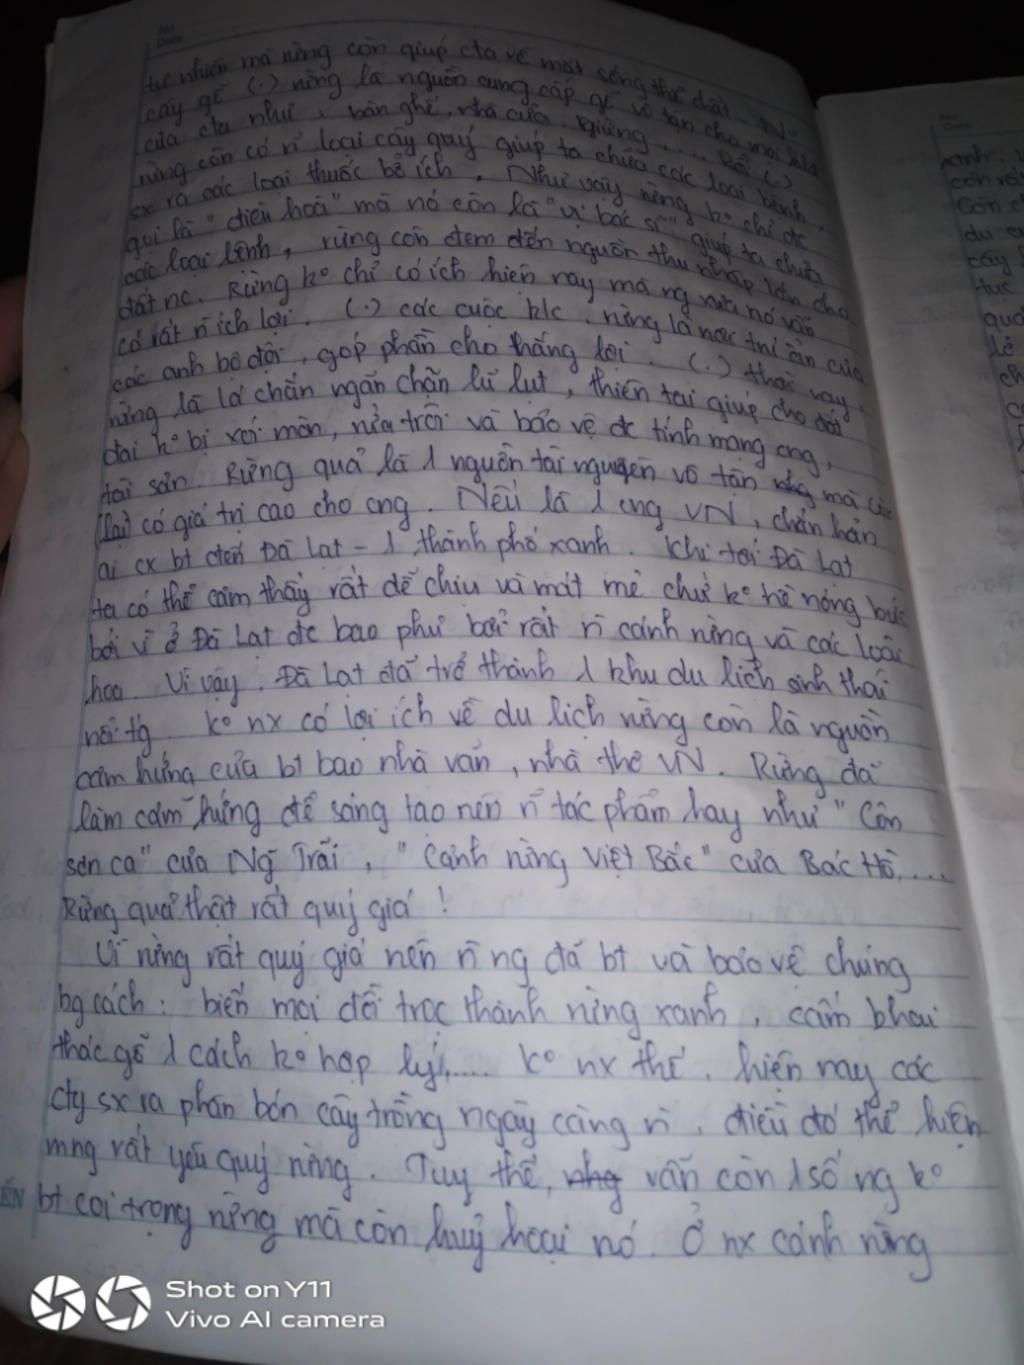 No
Date
tự nhiên mà rừng còn giúp cta về mặt sống thể chất
cây gỗ (.) rừng là nguồn cung cấp gỗ vô tận cho mọi
của cta như, bàn ghế, nhà cửa, giường, .... (.)
rừng còn có n̄ loại cây quý giúp ta chữa các loại bệnh,
sx ra các loại thuốc bổ ích. Như vậy rừng ko chỉ đc
gọi là "điều hoà" mà nó còn là "vị bác sĩ" giúp ta chữa
các loại bệnh, rừng còn đem đến nguồn thu nhập lớn cho
đất nc. Rừng ko chỉ có ích hiện nay mà ng xưa nó vẫn
có rất n̄ ích lợi. (.) các cuộc k/c, rừng là nơi trú ẩn của
các anh bộ đội, góp phần cho thắng lợi. (.) thời nay,
rừng là lá chắn ngăn chặn lũ lụt, thiên tai giúp cho đất
đai ko bị xói mòn, rửa trôi và bảo vệ đc tính mạng cng,
tài sản. Rừng quả là 1 nguồn tài nguyên vô tận mà còn
(lại) có giá trị cao cho cng. Nếu là 1 cng VN, chắn hẳn
ai cx bt đến Đà Lạt - 1 thành phố xanh. Khi tới Đà Lạt
ta có thể cảm thấy rất dễ chịu và mát mẻ chứ ko hề nóng bức
bởi vì ở Đà Lạt đc bao phủ bởi rất n̄ cánh rừng và các loài
hoa. Vì vậy, Đà Lạt đã trở thành 1 khu du lịch sinh thái
nổi tg. Ko nx có lợi ích về du lịch rừng còn là nguồn
cảm hứng của bt bao nhà văn, nhà thơ VN. Rừng đã
làm cảm hứng để sáng tạo nên n̄ tác phẩm hay như "Côn
sơn ca" của Ng̃ Trãi, "Cảnh rừng Việt Bắc" của Bác Hồ,....
Rừng quả thật rất quý giá!
Vì rừng rất quý giá nên n̄ ng đã bt và bảo vệ chúng
bg cách: biến mọi đồi trọc thành rừng xanh, cấm khai
thác gỗ 1 cách ko hợp lý,.... Ko nx thế, hiện nay các
cty sx ra phân bón cây trồng ngày càng n̄, điều đó thể hiện
mng rất yêu quý rừng. Tuy thế, nhg vẫn còn 1 số ng ko
bt coi trọng rừng mà còn huỷ hoại nó. Ở nx cánh rừng
Shot on Y11
Vivo AI camera